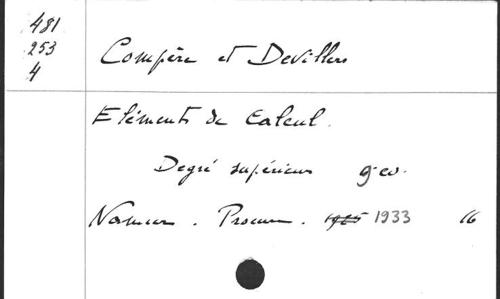 481
253
4
Compère et Devillers
Eléments de Calcul.
Degré supérieur g° ex.
Namur. Procure. 1925 1933 16